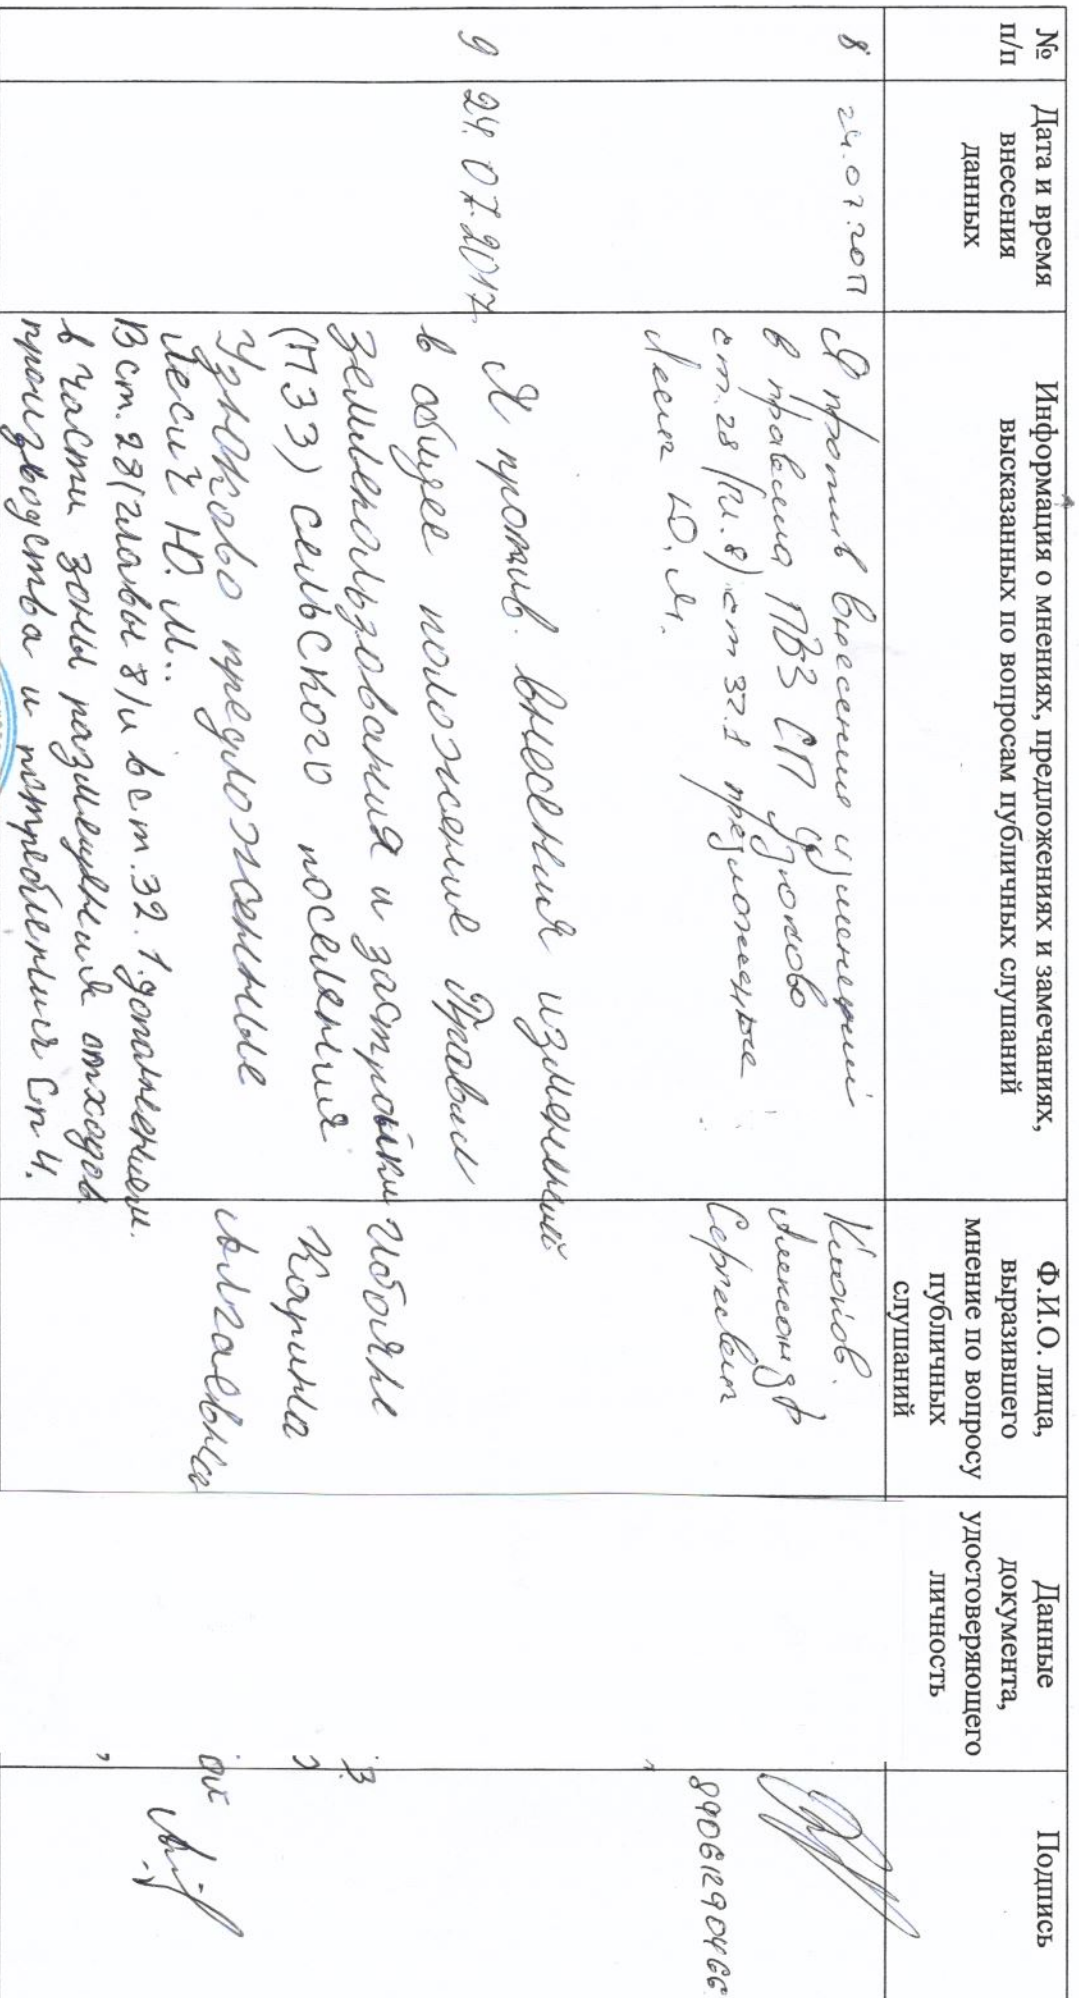 № п/п
Дата и время внесения данных
Информация о мнениях, предложениях и замечаниях, высказанных по вопросам публичных слушаний
Ф.И.О. лица, выразившего мнение по вопросу публичных слушаний
Данные документа, удостоверяющего личность
Подпись
8
24.07.2017
Я против внесения изменений
в правила ПЗЗ СП Узюково
ст. 28 (гл. 8) ст 32.1 предложенные
Лесич Ю. М.
Кионов
Александр
Сергеевич
89061290466
9
24.07.2017
Я против внесения изменений
в общее положение Правил
землепользования и застройки
(ПЗЗ) сельского поселения
Узюково предложенные
Лесич Ю. М..
В ст. 28 (главы 8) и в ст. 32.1. дополнением.
в части зоны размещения отходов
производства и потребления Сп 4.
Карина